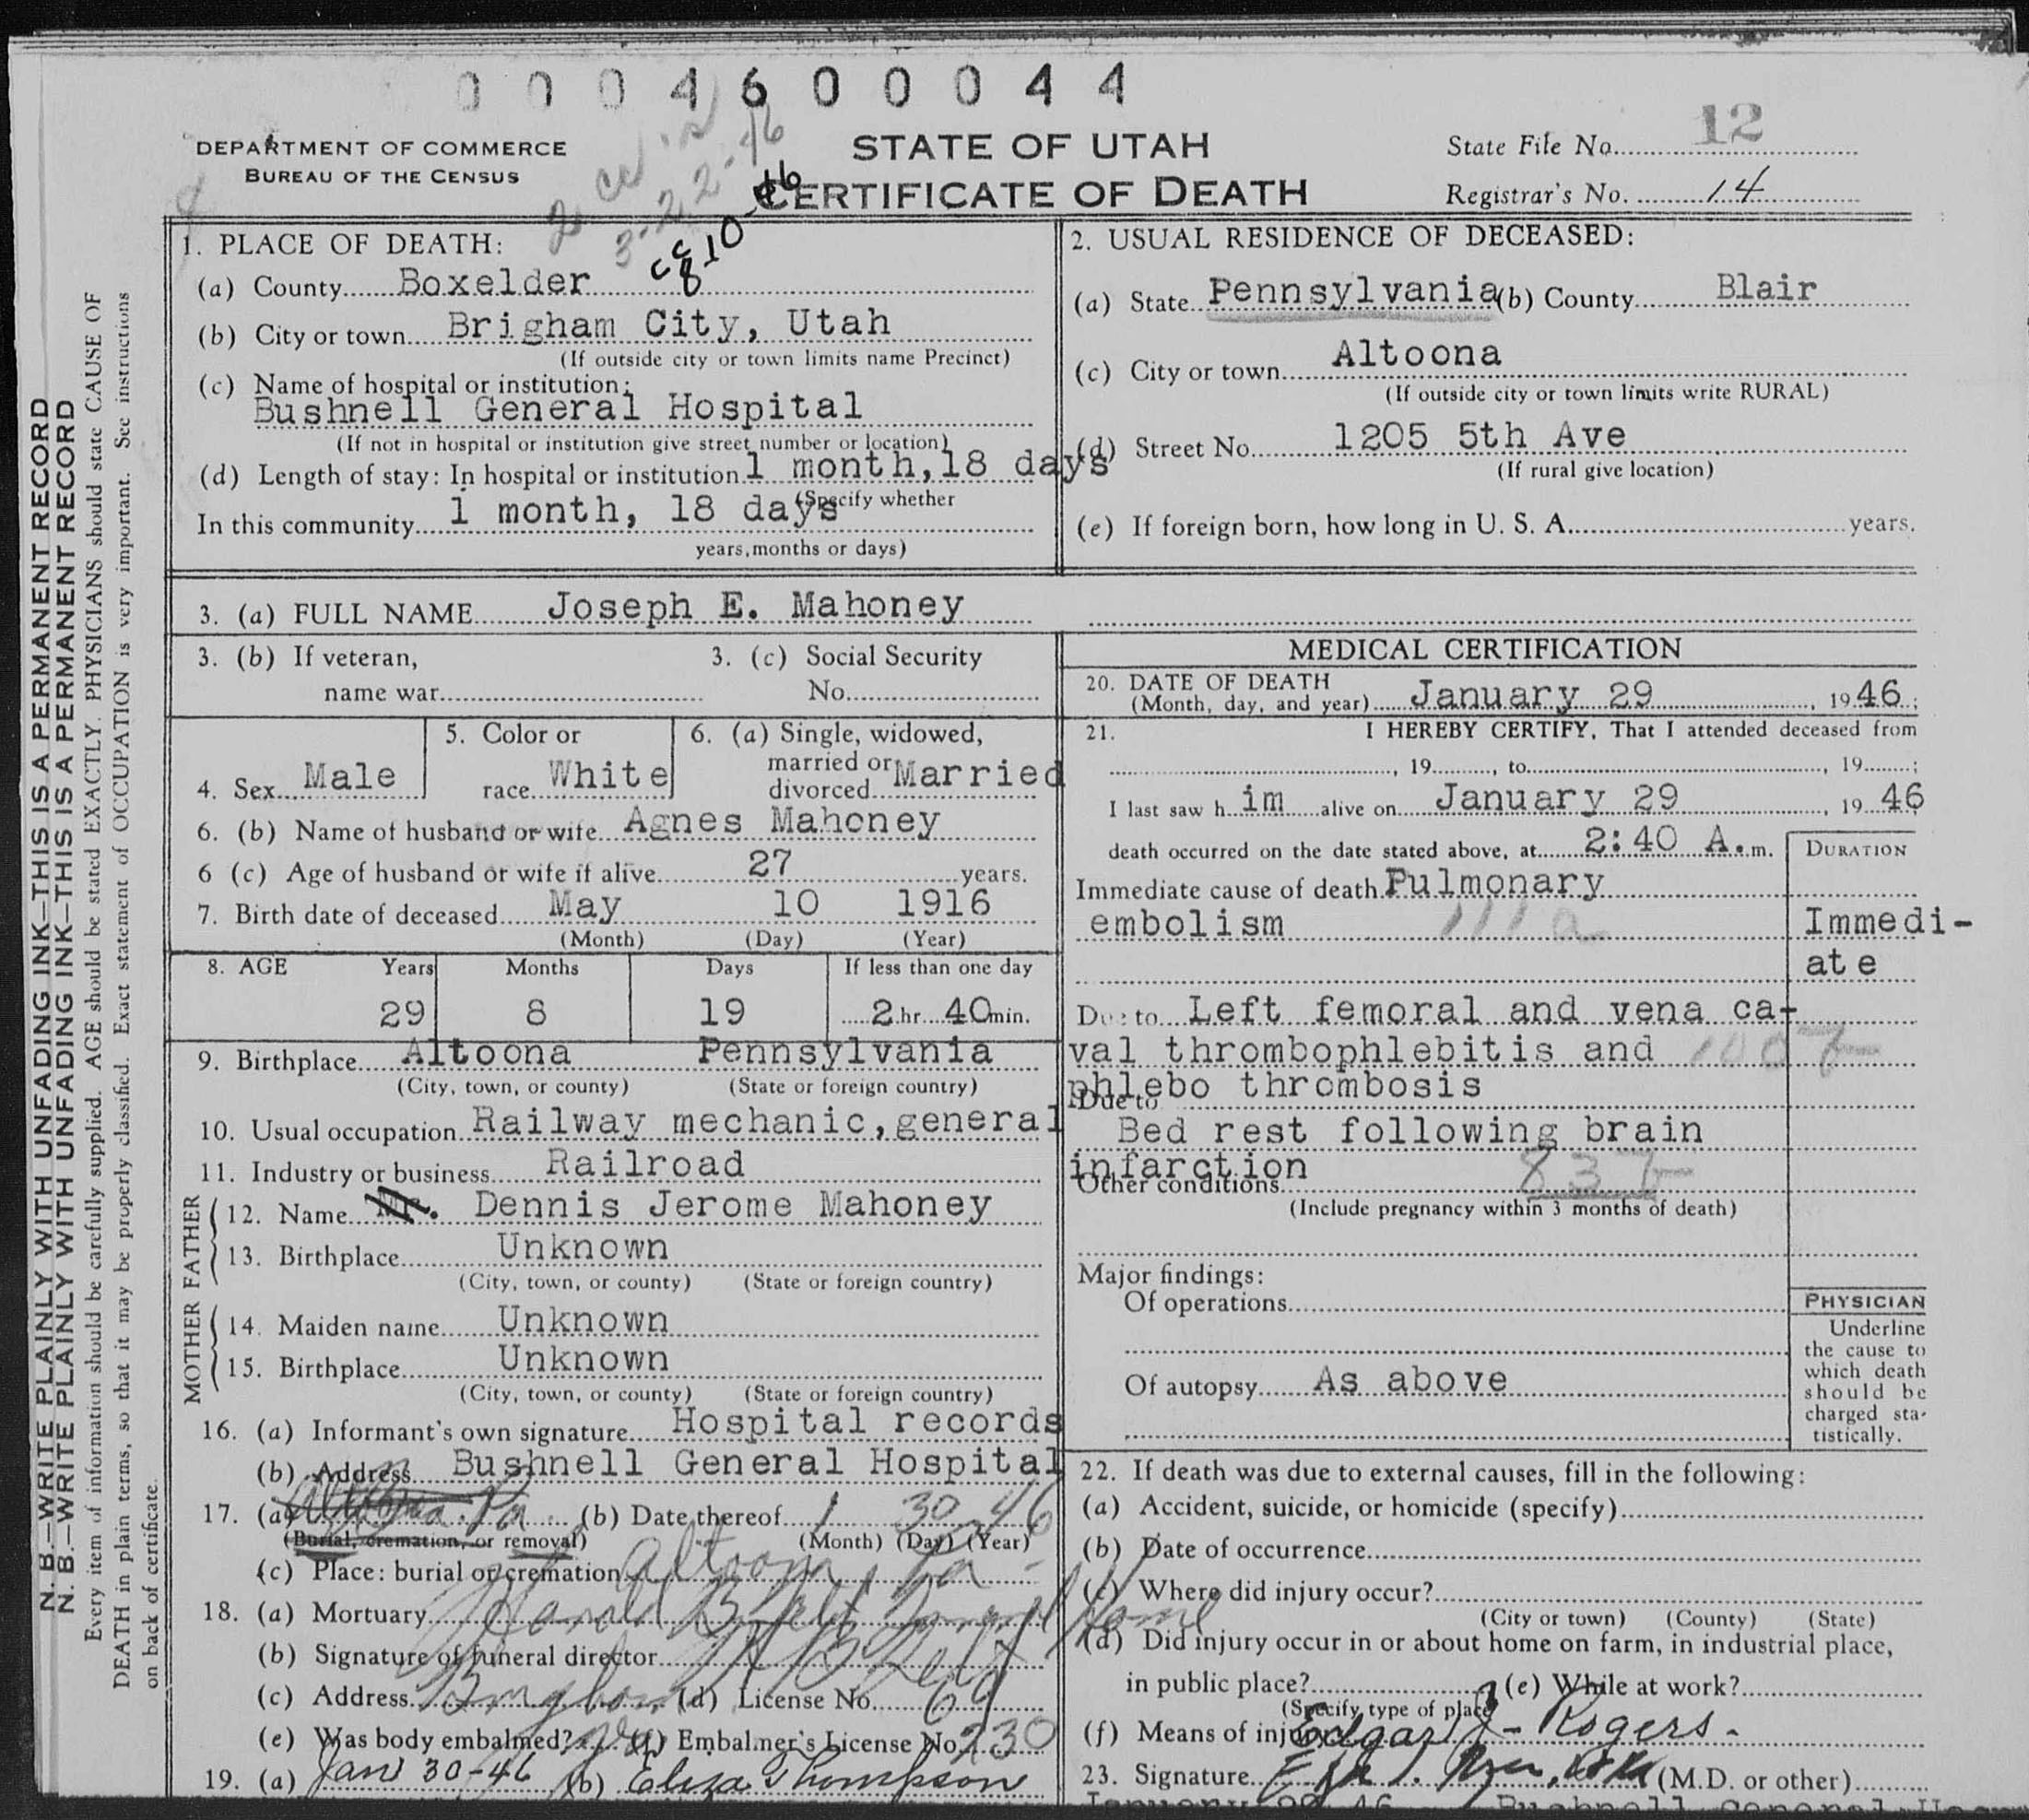 0 0 0 4 6 0 0 0 4 4
DEPARTMENT OF COMMERCE
BUREAU OF THE CENSUS
3-22-46
cc 8-10-46
STATE OF UTAH
CERTIFICATE OF DEATH
State File No. 12
Registrar's No. 14
1. PLACE OF DEATH:
(a) County Boxelder
(b) City or town Brigham City, Utah
(If outside city or town limits name Precinct)
(c) Name of hospital or institution:
Bushnell General Hospital
(If not in hospital or institution give street number or location)
(d) Length of stay: In hospital or institution 1 month, 18 days
(Specify whether
In this community 1 month, 18 days
years, months or days)
2. USUAL RESIDENCE OF DECEASED:
(a) State Pennsylvania (b) County Blair
(c) City or town Altoona
(If outside city or town limits write RURAL)
(d) Street No. 1205 5th Ave
(If rural give location)
(e) If foreign born, how long in U. S. A. years.
3. (a) FULL NAME Joseph E. Mahoney
3. (b) If veteran,
name war
3. (c) Social Security
No.
4. Sex Male
5. Color or
race White
6. (a) Single, widowed,
married or
divorced Married
6. (b) Name of husband or wife Agnes Mahoney
6 (c) Age of husband or wife if alive 27 years.
7. Birth date of deceased May 10 1916
(Month) (Day) (Year)
8. AGE Years Months Days If less than one day
29 8 19 2 hr. 40 min.
9. Birthplace Altoona Pennsylvania
(City, town, or county) (State or foreign country)
10. Usual occupation Railway mechanic, general
11. Industry or business Railroad
FATHER
12. Name Mr. Dennis Jerome Mahoney
13. Birthplace Unknown
(City, town, or county) (State or foreign country)
MOTHER
14. Maiden name Unknown
15. Birthplace Unknown
(City, town, or county) (State or foreign country)
16. (a) Informant's own signature Hospital records
(b) Address Bushnell General Hospital
17. (a) Altoona Pa (b) Date thereof 1 30 46
(Burial, cremation, or removal) (Month) (Day) (Year)
(c) Place: burial or cremation Altoona, Pa -
18. (a) Mortuary Harold B Felt Funeral Home
(b) Signature of funeral director H B Felt
(c) Address Brigham (d) License No. 69
(e) Was body embalmed? yes (f) Embalmer's License No. 230
19. (a) Jan 30-46 (b) Eliza Thompson
MEDICAL CERTIFICATION
20. DATE OF DEATH
(Month, day, and year) January 29, 1946;
21. I HEREBY CERTIFY, That I attended deceased from
, 19 , to , 19 ;
I last saw him alive on January 29, 1946
death occurred on the date stated above, at 2:40 A. m.
DURATION
Immediate cause of death Pulmonary
embolism 111a
Immedi-
ate
Due to Left femoral and vena ca-
val thrombophlebitis and
phlebo thrombosis
Due to
Bed rest following brain
infarction
Other conditions
(Include pregnancy within 3 months of death)
Major findings:
Of operations
Of autopsy As above
PHYSICIAN
Underline
the cause to
which death
should be
charged sta-
tistically.
22. If death was due to external causes, fill in the following:
(a) Accident, suicide, or homicide (specify)
(b) Date of occurrence
(c) Where did injury occur?
(City or town) (County) (State)
(d) Did injury occur in or about home on farm, in industrial place,
in public place? (e) While at work?
(Specify type of place)
(f) Means of injury
Edgar J - Rogers -
23. Signature (M.D. or other)
N. B.—WRITE PLAINLY WITH UNFADING INK—THIS IS A PERMANENT RECORD
N. B.—WRITE PLAINLY WITH UNFADING INK—THIS IS A PERMANENT RECORD
Every item of information should be carefully supplied. AGE should be stated EXACTLY. PHYSICIANS should state CAUSE OF
DEATH in plain terms, so that it may be properly classified. Exact statement of OCCUPATION is very important. See instructions
on back of certificate.